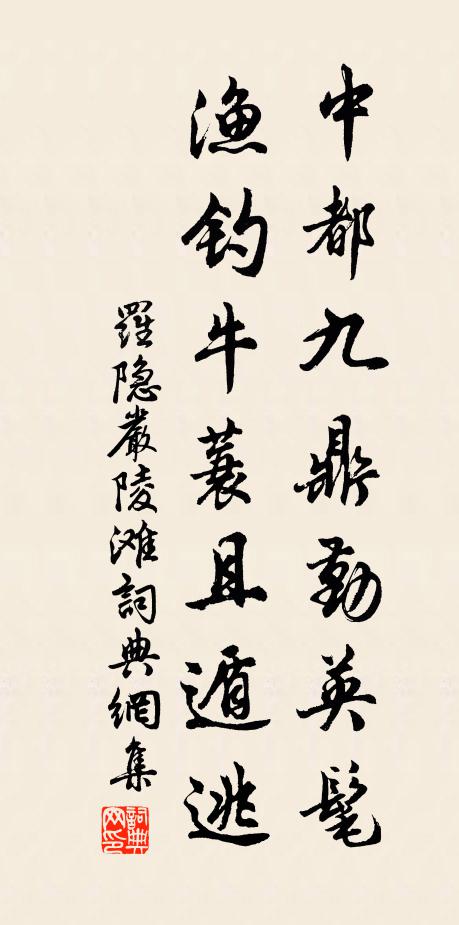 中都九鼎勤英髦
渔钓牛蓑且遁逃
羅隐嚴陵滩詞典網集
詞典网印